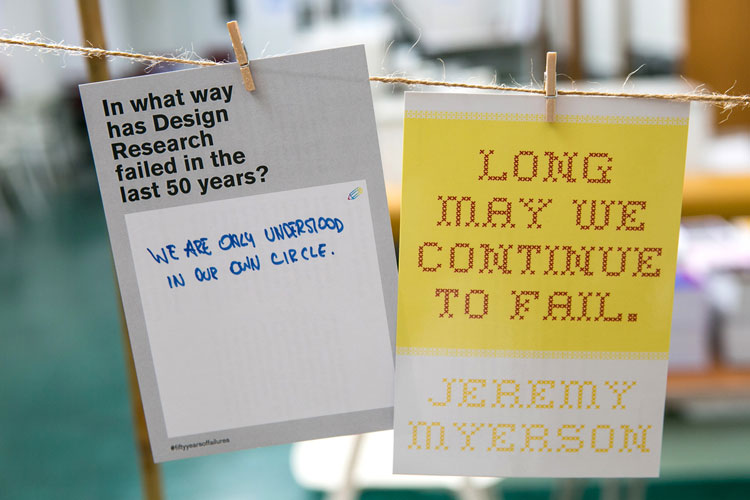 In what way
has Design
Research
failed in the
last 50 years?
WE ARE ONLY UNDERSTOOD
IN OUR OWN CIRCLE.
#fiftyyearsoffailures
LONG
MAY WE
CONTINUE
TO FAIL.
JEREMY
MYERSON